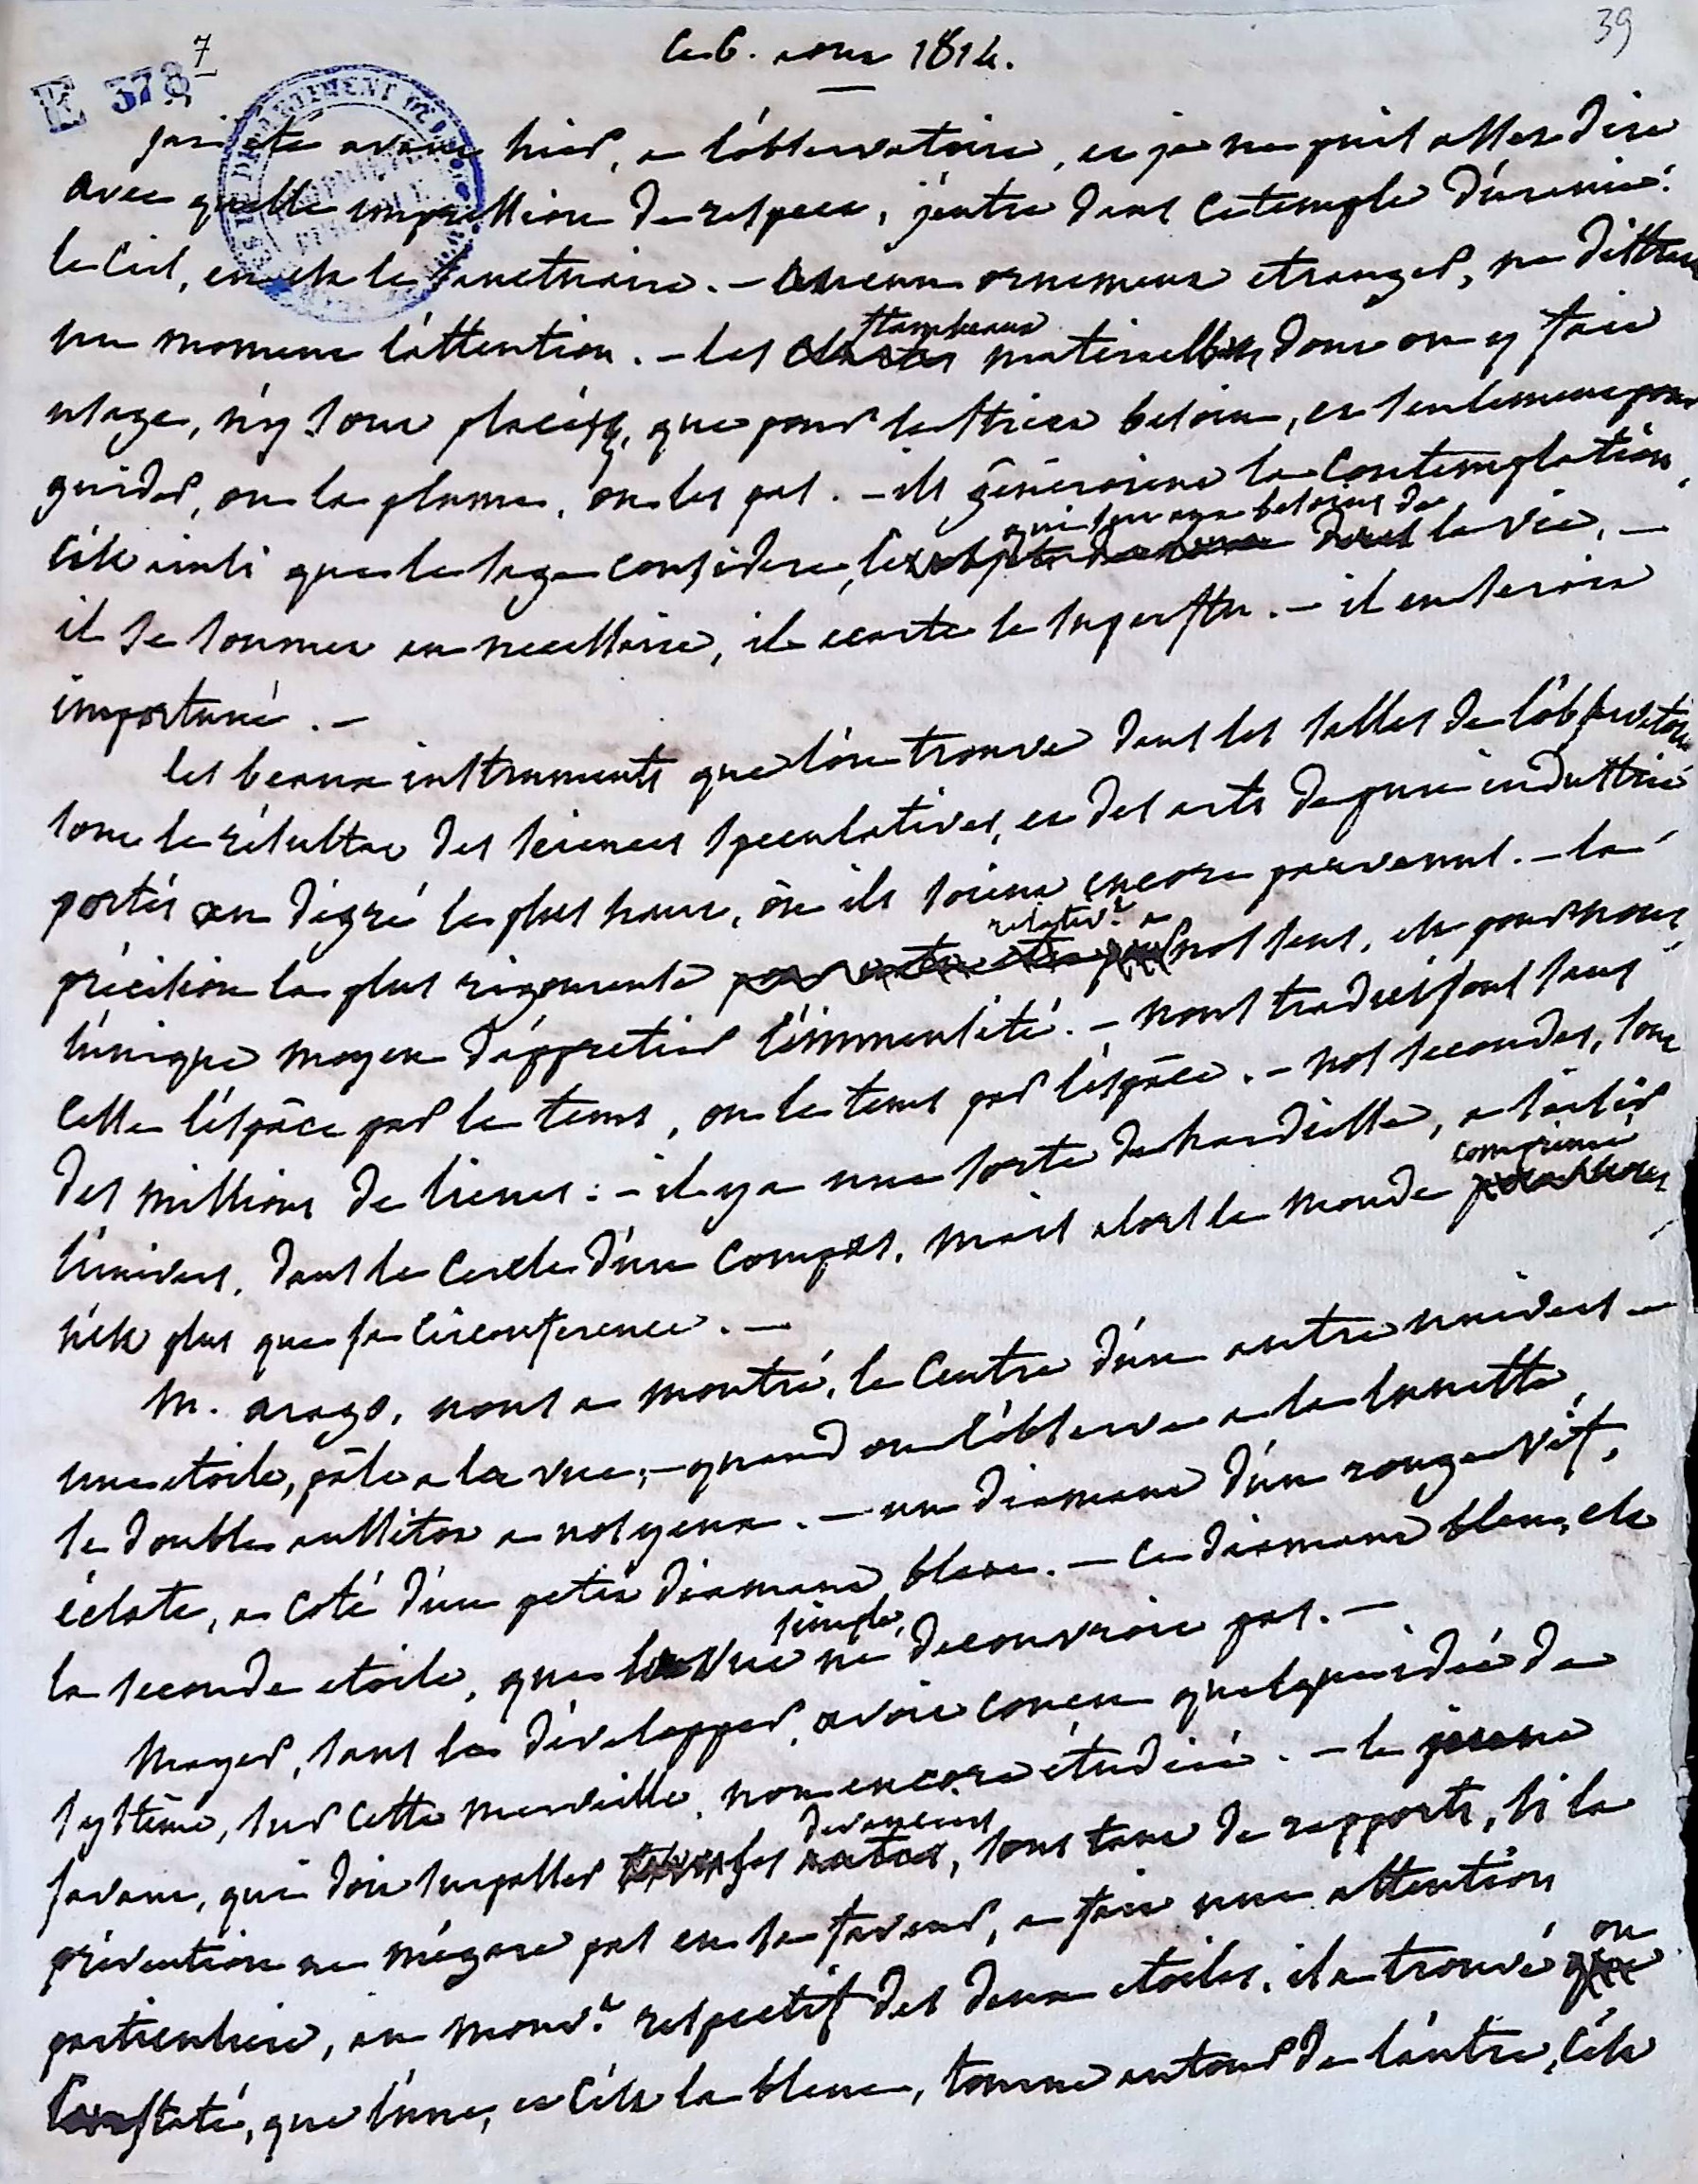 39
7
E 378
ce 6. aout 1814.
j'ai été avant hier, a l'observatoire, et je ne puis assez dire
avec quelle impression de respect, j'entre dans ce temple d'uranie.
le ciel, en est le sanctuaire. - aucun ornement etranger, ne distrait
un moment l'attention. - les flambeaux materiels, dont on y fait
usage, n'y sont placés, que pour le strict besoin, et seulement pour
guider, ou la plume, ou les pas. - ils gêneraient la contemplation,
c'est ainsi que le sage considere, les besoins de la vie, -
il se soumet au necessaire, il ecarte le superflu. - il en serait
importuné. -
les beaux instruments que l'on trouve dans les salles de l'observatoire
sont le résultat des sciences speculatives, et des arts de pure industrie
portés au dégré le plus haut, où ils soient encore parvenus. - la
précision la plus rigoureuse relativt a nos sens, est pour nous
l'unique moyen d'apprecier l'immensité. - nous traduisons sans
cesse l'espâce par le tems, ou le tems par l'espâce. - nos secondes, sont
des millions de lieues: - il y a une sorte de hardiesse, a saisir
l'univers, dans le cercle d'un compas, mais alors le monde comprimé
n'est plus que sa circonference. -
M. arago, nous a montré, le centre d'un autre univers -
une etoile, pâle a la vue, - quand on l'observe a la lunette,
se double aussitot a nos yeux. - un diamant d'un rouge vif,
éclate, a coté d'un petit diamant bleu. - ce diamant bleu, est
la seconde etoile, que la vue simple, ne decouvrait pas. -
Mayer, sans les développer, avait concu quelque idée de
systême, sur cette merveille, non encore étudiée. - le jeune
savant, qui doit surpasser ses devanciers, sous tant de rapports, si la
prévention ne m'égare pas en sa faveur, a fait une attention
particuliere, au mouvt respectif des deux etoiles, il a trouvé ou
constaté, que l'une, et c'est la bleue, tourne autour de l'autre, c'est